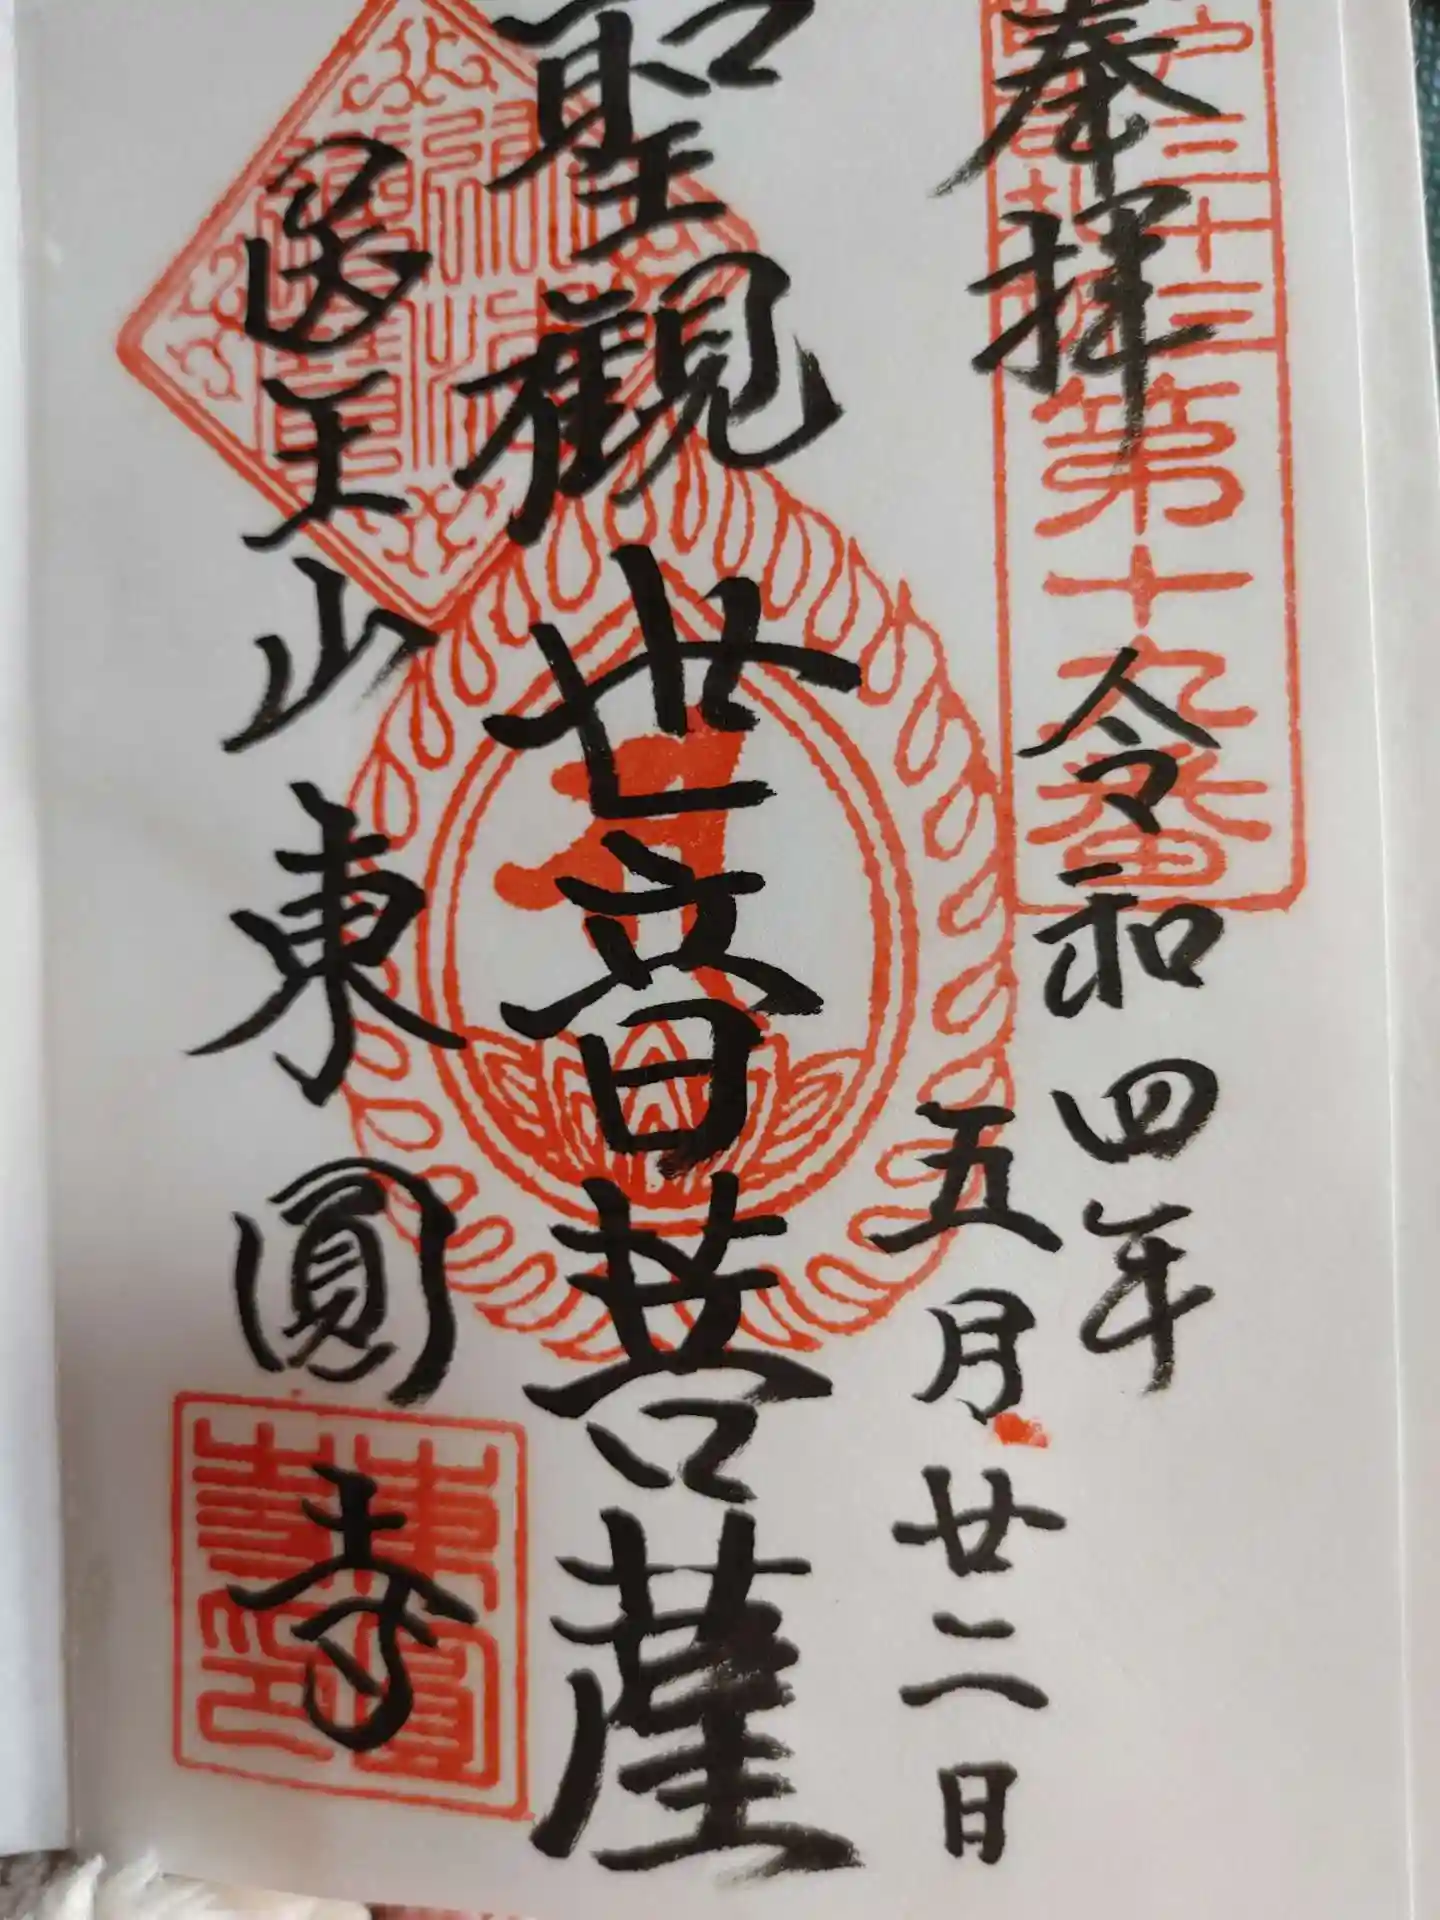 奉拝
令和四年
五月廿二日
聖観世音菩薩
医王山東圓寺
三十三
第十九番
東圓寺印